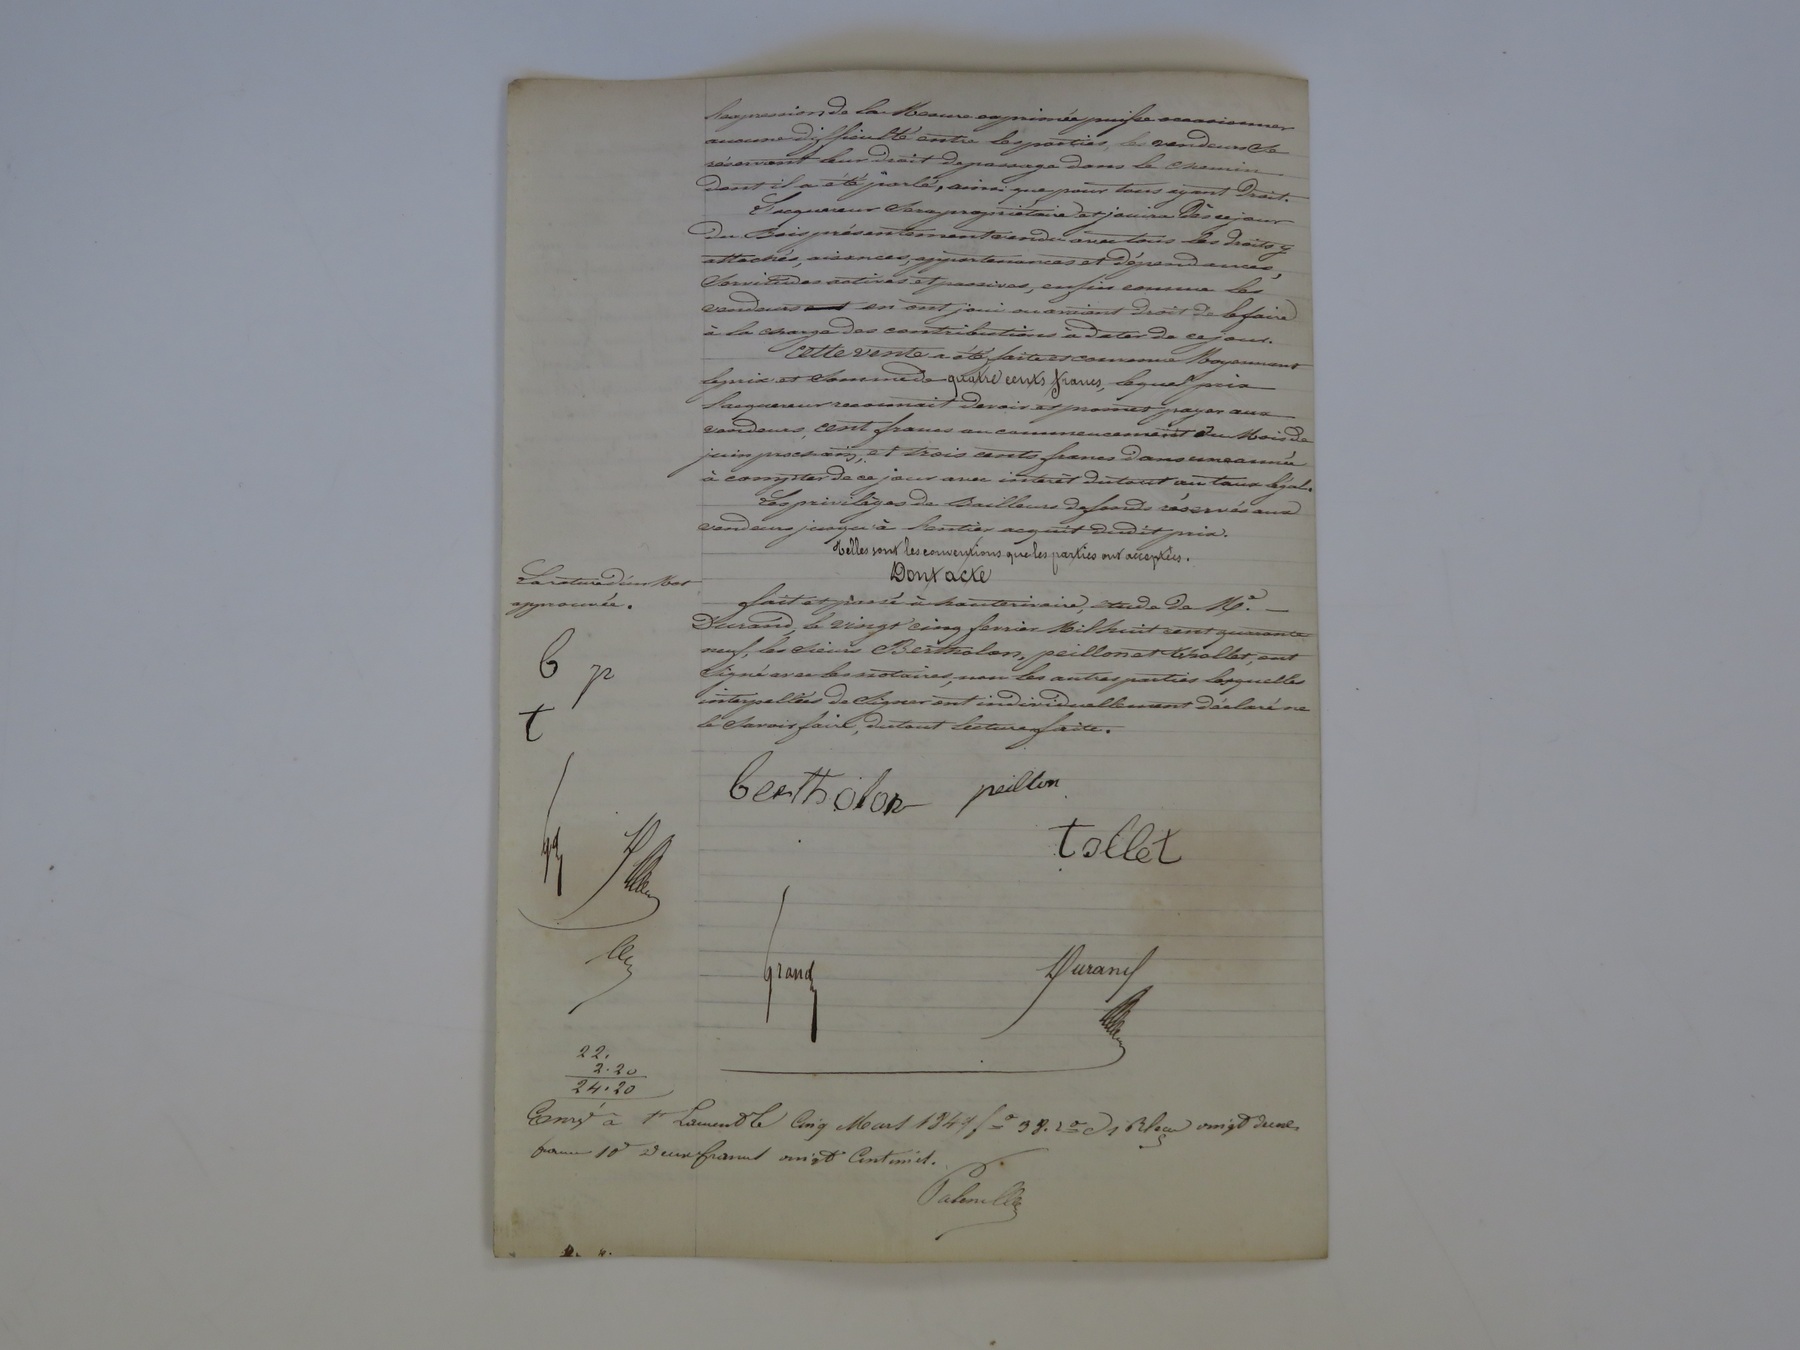 l'expression de la Mesure exprimée puisse occasionner
aucune difficulté entre les parties, les vendeurs se
réservant leur droit de passage dans le chemin
dont il a été parlé, ainsi que pour tous ayant droit.
L'acquereur sera propriétaire et jouira dès ce jour
du Bois présentement vendu avec tous les droits y
attachés, aisances, appartenances et dépendances,
servitudes actives et passives, enfin comme les
vendeurs en ont joui ou avaient droit de le faire
à la charge des contributions à dater de ce jour.
Cette vente a été faite et convenue Moyennant
le prix et somme de quatre cents francs, lequel prix
l'acquereur reconnait devoir et promet payer aux
vendeurs, cent francs au commencement du Mois de
juin prochain, et trois cents francs dans une année
à compter de ce jour avec intérêt du tout au taux légal.
Les privilèges de Bailleurs de fonds réservés aux
vendeurs jusqu'à l'entier acquit dudit prix.
Telles sont les conventions que les parties ont acceptées.
Dont acte
fait et passé à hauterivoire, étude de Me.
Durand, le vingt cinq fevrier Mil huit cent quarante
neuf, les sieurs Bertholon, peillon et thollet, ont
signé avec les notaires, non les autres parties lesquelles
interpellées de signer ont individuellement déclaré ne
le savoir faire, du tout lecture faite.
La rature d'un Mot
approuvée.
b p
t
bertholon peillon
tollet
grand Durand
22.
2.20
24.20
Enreg à St Laurent le Cinq Mars 1849 fo 38. ro vingt deux
francs 10e deux francs vingt Centimes.